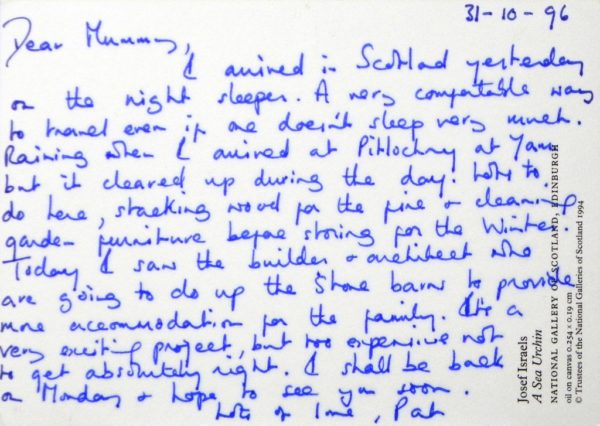 31-10-96
Dear Mummy,
I arrived in Scotland yesterday
on the night sleeper. A very comfortable way
to travel even if one doesn't sleep very much.
Raining when I arrived at Pitlochry at 7am
but it cleared up during the day. Lots to
do here, stacking wood for the fire & cleaning
garden furniture before storing for the Winter.
Today I saw the builder & architect who
are going to do up the Stone barns to provide
more accommodation for the family. It's a
very exciting project, but too expensive not
to get absolutely right. I shall be back
on Monday & hope to see you soon.
Lots of love, Pat
Josef Israels
A Sea Urchin
NATIONAL GALLERY OF SCOTLAND, EDINBURGH
oil on canvas 0.254 × 0.19 cm
© Trustees of the National Galleries of Scotland 1994